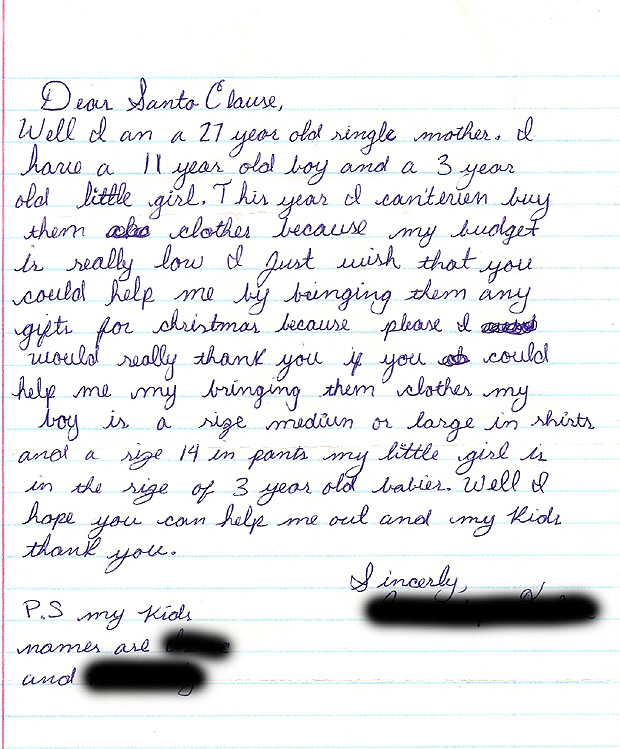 Dear Santa Clause,
Well I am a 27 year old single mother. I
have a 11 year old boy and a 3 year
old little girl. This year I can't even buy
them clothes because my budget
is really low I Just wish that you
could help me by bringing them any
gifts for christmas because please I
would really thank you if you could
help me my bringing them clothes my
boy is a size medium or large in shirts
and a size 14 in pants my little girl is
in the size of 3 year old babies. Well I
hope you can help me out and my kids
thank you.
Sincerly,
P.S my kids
names are
and